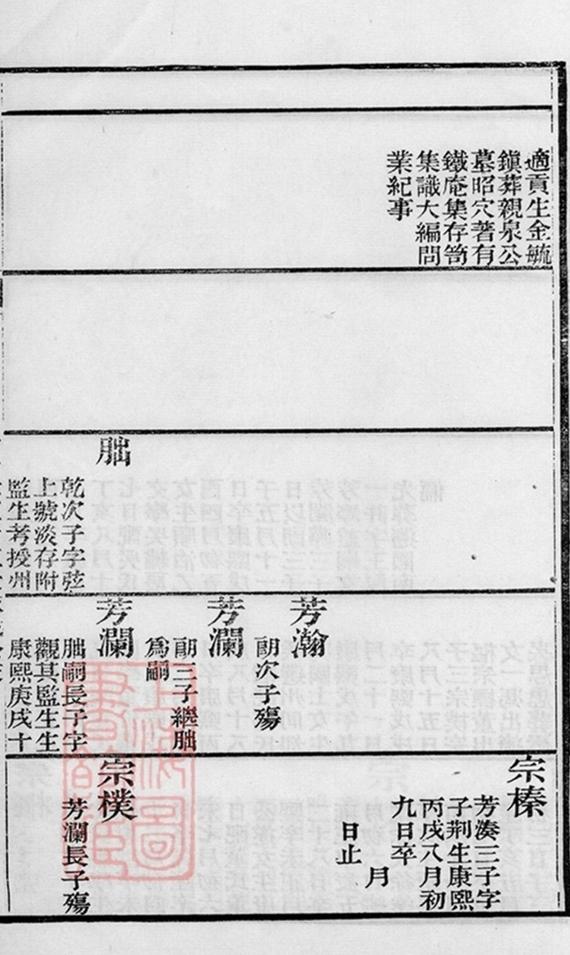 適貢生金毓
鎮葬親泉公
墓昭穴著有
鐵庵集存笥
集識大編問
業紀事
朏
乾次子字弦
上號淡存附
監生考授州
芳瀚
朏次子殤
芳瀾
朏三子繼朏
為嗣
芳瀾
朏嗣長子字
觀其監生生
康熙庚戌十
宗榛
芳湊三子字
子荆生康熙
丙戌八月初
九日卒 月
日止
宗樸
芳瀾長子殤